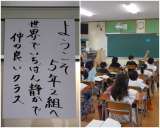 ようこそ
5年2組へ
世界でいちばん静かで
仲の良いクラス